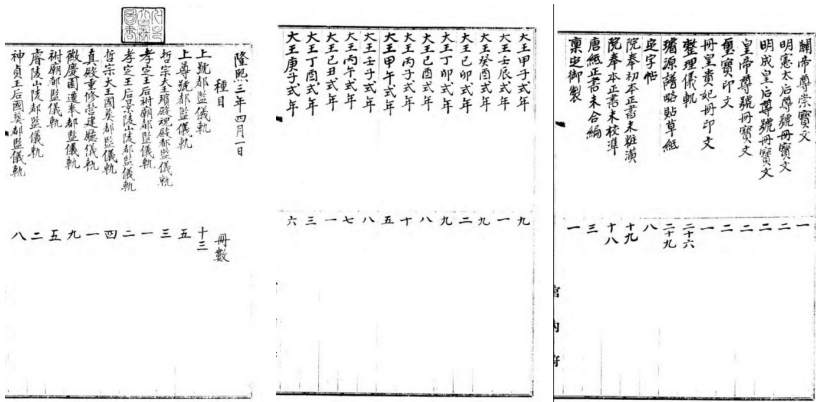 隆熙三年四月一日
種目 冊數
上號都監儀軌 十三
上尊號都監儀軌 五
哲宗大王殯殿魂殿都監儀軌 三
孝定王后祔廟都監儀軌 一
孝定王后景陵山陵都監儀軌 二
哲宗大王國葬都監儀軌 四
真殿重修營建廳儀軌 一
徽慶園遷奉都監儀軌 九
祔廟都監儀軌 五
睿陵山陵都監儀軌 二
神貞王后國葬都監儀軌 八
大王甲子式年 九
大王壬辰式年 一
大王癸酉式年 九
大王己卯式年 二
大王丁卯式年 九
大王己酉式年 八
大王丙子式年 十
大王甲午式年 五
大王壬子式年 八
大王丙午式年 七
大王己丑式年 一
大王丁酉式年 三
大王庚子式年 六
關帝尊崇寶文 一
明憲太后尊號冊寶文 二
明成皇后尊號冊寶文 二
皇帝尊號冊寶文 二
璽寶印文 二
冊皇貴妃冊印文 一
整理儀軌 二十六
璿源譜略貼草紙 二十九
定字帖 八
院奉初本正書未粧潢 十九
院奉本正書未校準 十八
唐紙正書未合編 三
稟定御製 一
宮內府